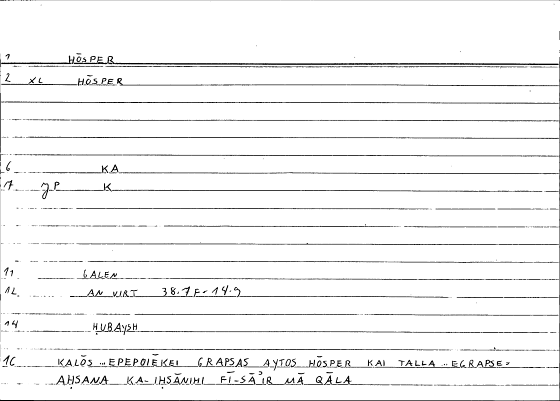 1 HŌSPER
2 XL HŌSPER
6 KA
7 JP K
11 GALEN
12 AN VIRT 38.7F-14.9
14 ḤUBAYSH
16 KALŌS … EPEPOIĒKEI GRAPSAS AYTOS HŌSPER KAI TALLA … EGRAPSE=
AḤSANA KA-IḤSĀNIHI FĪ-SĀʾIR MĀ QĀLA